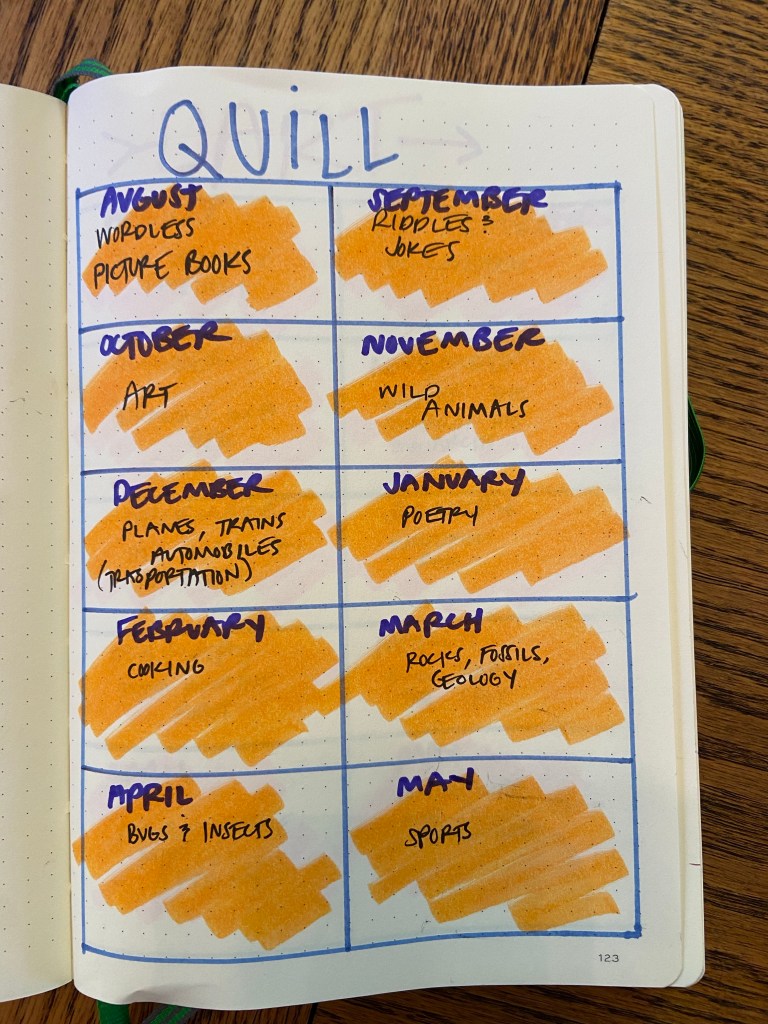 QUiLL
AUGUST
WORDLESS
PICTURE BOOKS
SEPTEMBER
RIDDLES &
JOKES
OCTOBER
ART
NOVEMBER
WILD
ANIMALS
DECEMBER
PLANES, TRAINS
AUTOMOBILES
(TRASPORTATION)
JANUARY
POETRY
FEBRUARY
COOKING
MARCH
ROCKS, FOSSILS,
GEOLOGY
APRIL
BUGS & INSECTS
MAY
SPORTS
123